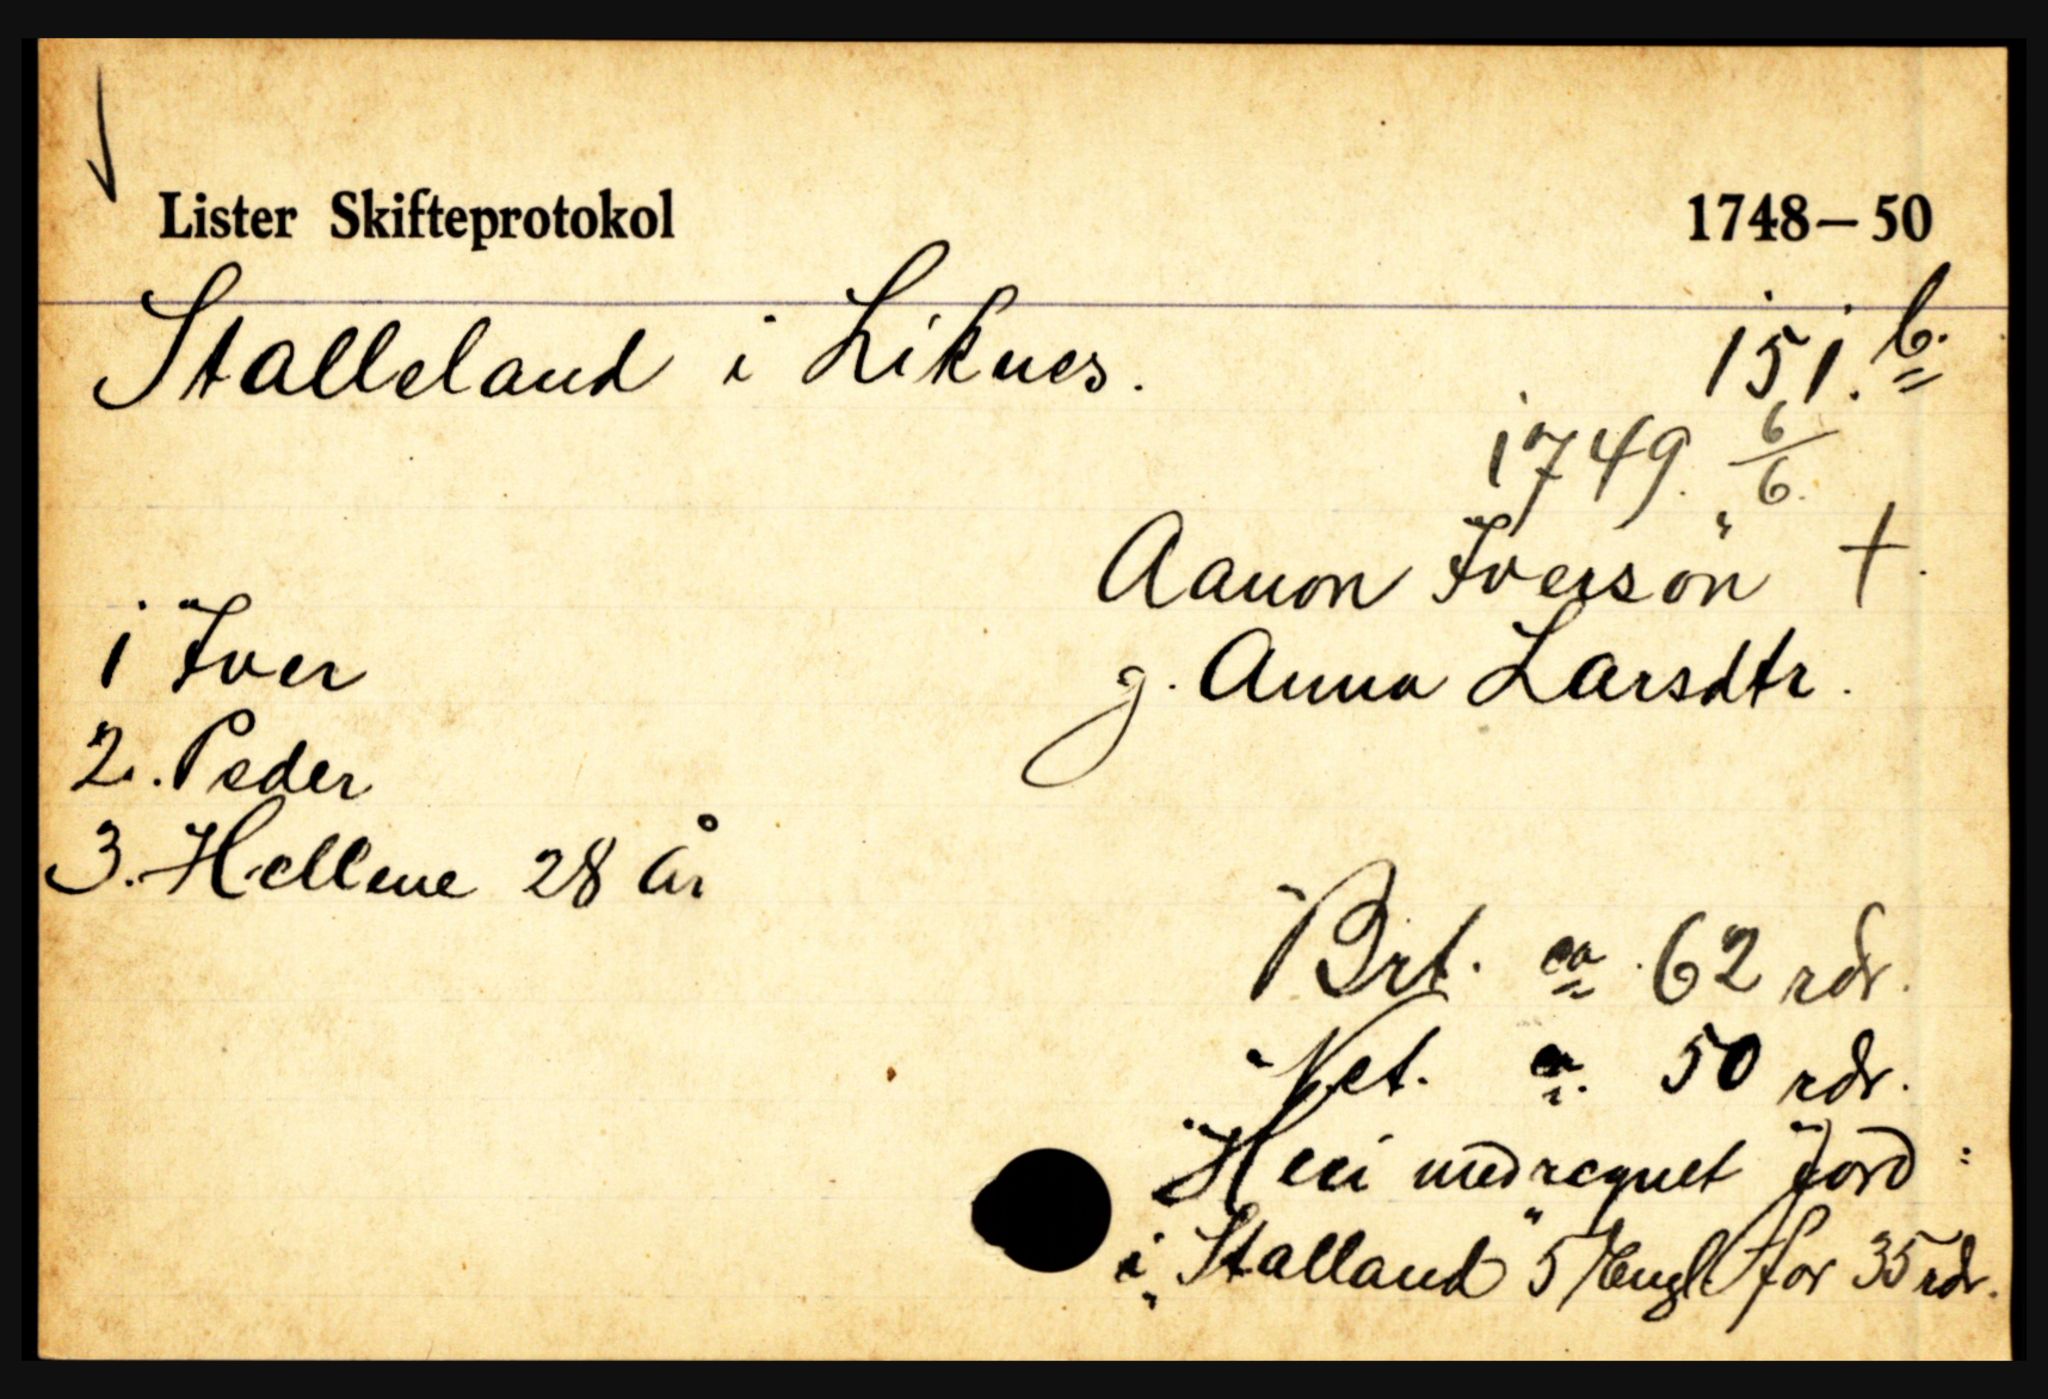 Lister Skifteprotokol 1748–50
Stalleland i Liknes. 151.b.
1749. 6/6.
Aanon Iverson †.
1 Iver
g. Anna Larsdtr.
2. Peder
3. Hellene 28 år
Brt. ca. 62 rdr.
Net. ca. 50 rdr.
Heri medregnet jord
i "Stalland" 5 Engl for 35 rdr.